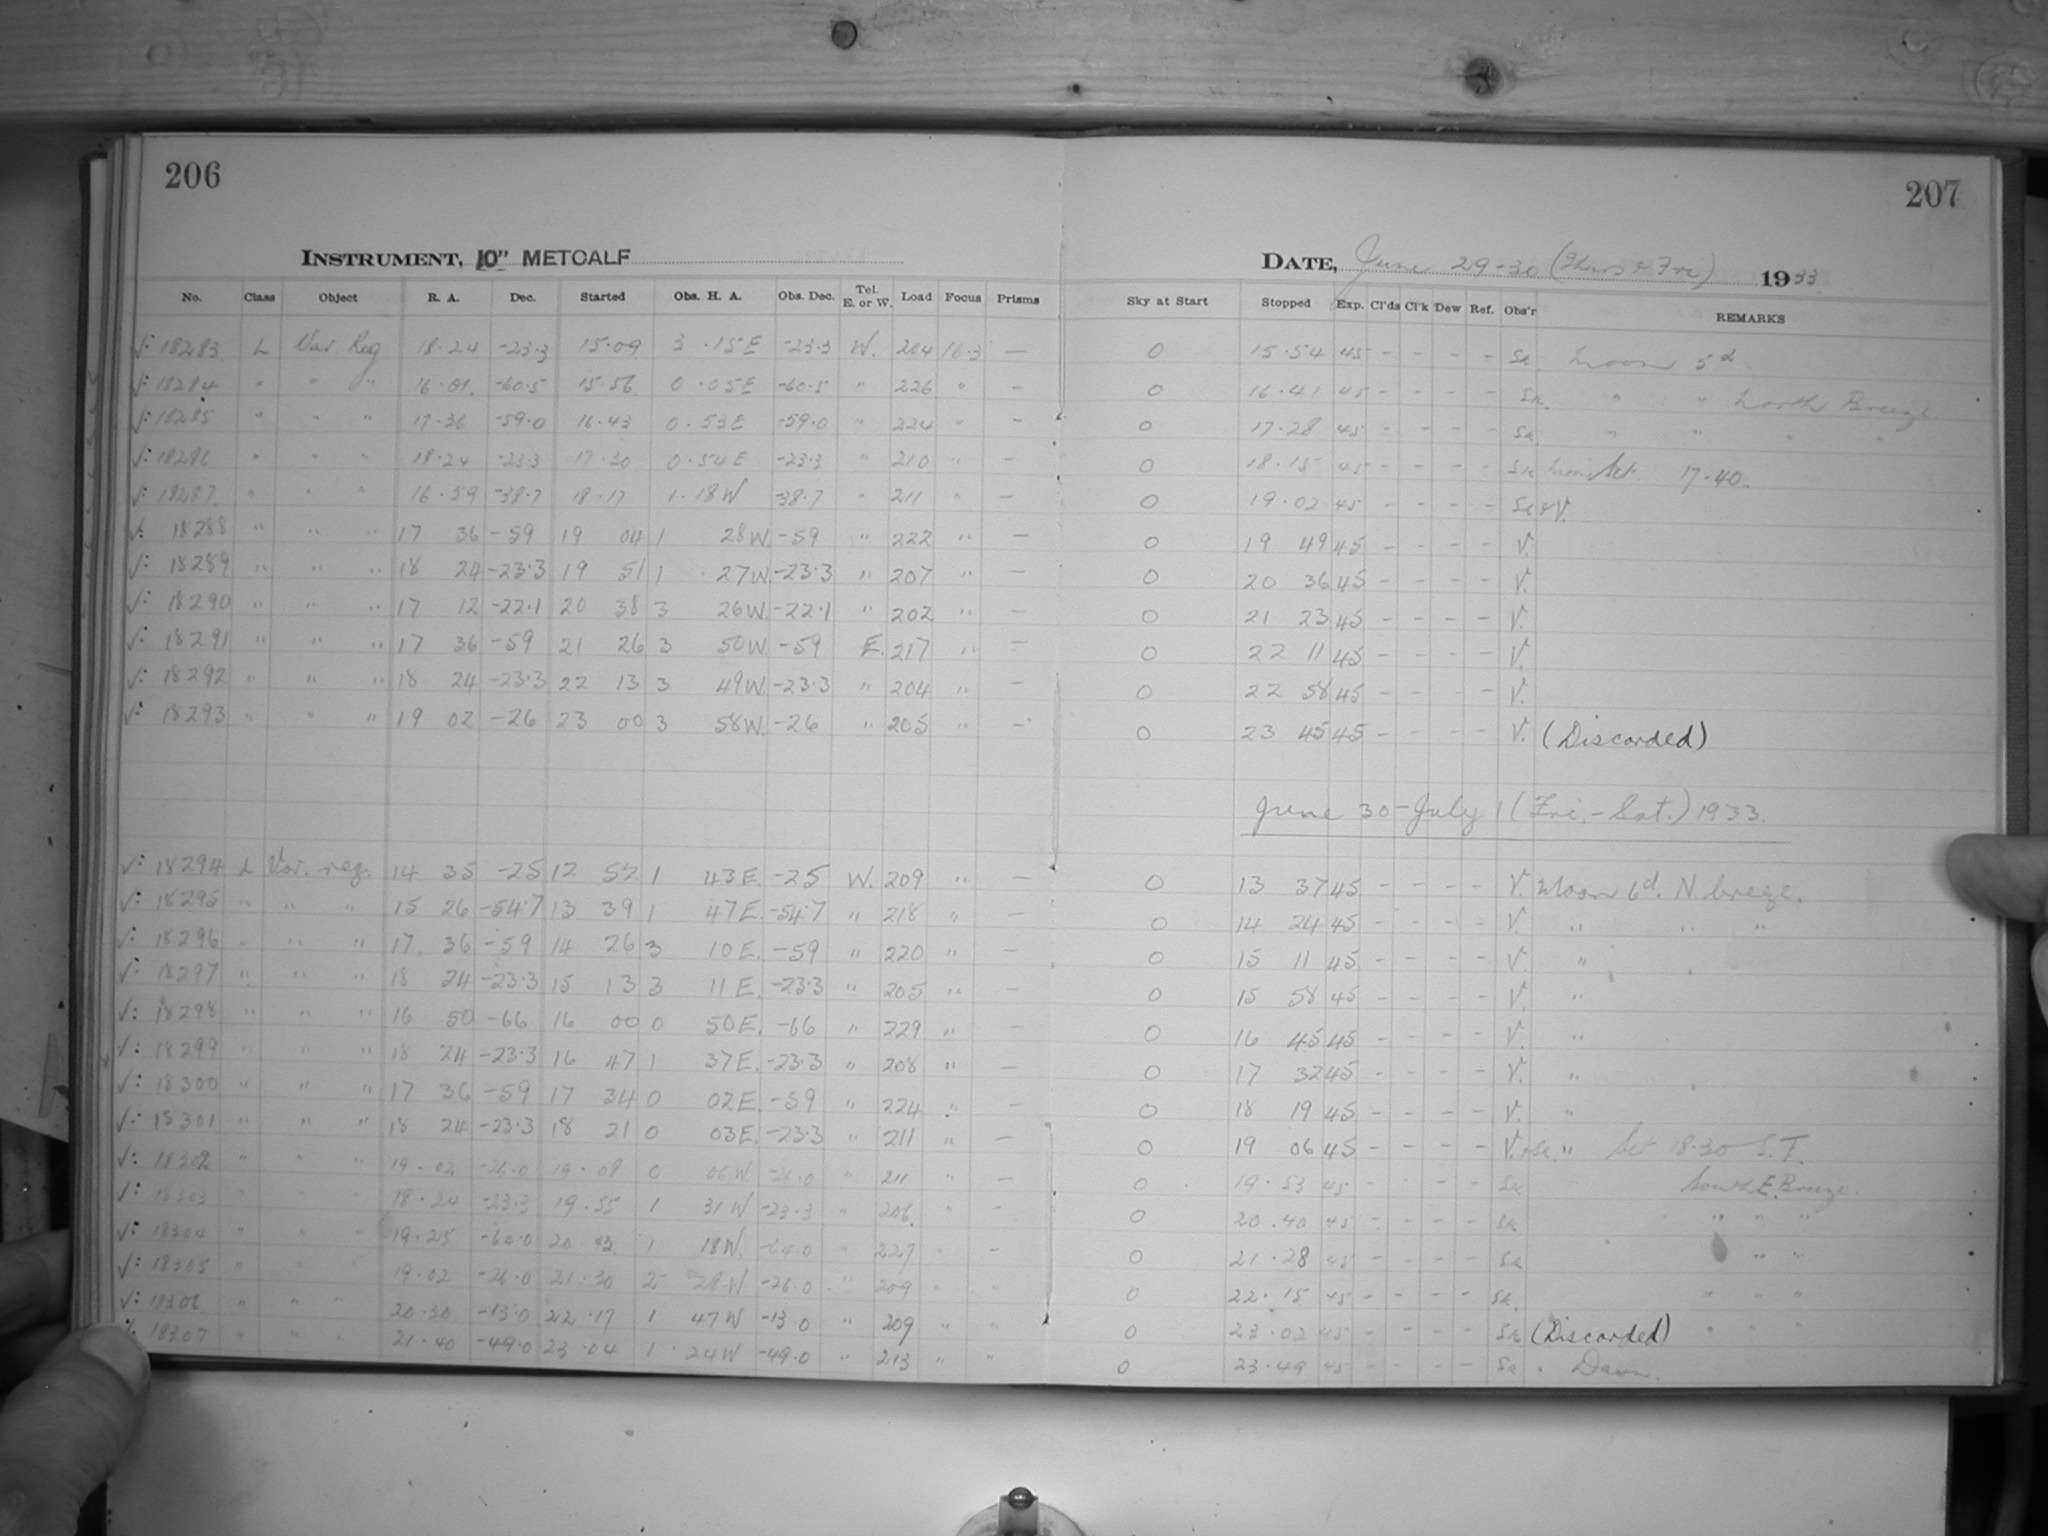 206
207
INSTRUMENT, 10" METCALF
DATE, June 29-30 (Thurs & Fri) 1933
No. Class Object R. A. Dec. Started Obs. H. A. Obs. Dec. Tel. E. or W. Load Focus Prisms Sky at Start Stopped Exp. Cl'ds Cl'k Dew Ref. Obs'r REMARKS
√: 18283 L Var. Reg 18·24 -23·3 15·09 3 ·15E -23·3 W. 204 16·3 — 0 15·54 45 - - - - Sa. Moon 5d
√: 18284 " " " 16·01 -60·5 15·56 0·05E -60·5 " 226 " — 0 16·41 45 - - - - Sa. " " North Breeze
√: 18285 " " " 17·36 -59·0 16·43 0·53E -59·0 " 224 " — 0 17·28 45 - - - - Sa. " " " "
√: 18286 " " " 18·24 -23·3 17·30 0·54E -23·3 " 210 " — 0 18·15 45 - - - - Sa Moon Set 17·40.
√: 18287 " " " 16·59 -38·7 18·17 1·18W 38·7 " 211 " — 0 19·02 45 - - - - Sa & V.
√: 18288 " " " 17 36 -59 19 04 1 28W -59 " 222 " — 0 19 49 45 - - - - V.
√: 18289 " " " 18 24 -23·3 19 51 1 27W. -23·3 " 207 " — 0 20 36 45 - - - - V.
√: 18290 " " " 17 12 -22·1 20 38 3 26W. -22·1 " 202 " — 0 21 23 45 - - - - V.
√: 18291 " " " 17 36 -59 21 26 3 50W. -59 E. 217 " — 0 22 11 45 - - - - V.
√: 18292 " " " 18 24 -23·3 22 13 3 49W. -23·3 " 204 " — 0 22 58 45 - - - - V.
√: 18293 " " " 19 02 -26 23 00 3 58W. -26 " 205 " — 0 23 45 45 - - - - V. (Discarded)
June 30-July 1 (Fri.-Sat.) 1933.
√: 18294 L Var. reg. 14 35 -25 12 52 1 43E. -25 W. 209 " — 0 13 37 45 - - - - V. Moon 6d. N. breeze.
√: 18295 " " " 15 26 -54·7 13 39 1 47E. -54·7 " 218 " — 0 14 24 45 - - - - V. " " "
√: 18296 " " " 17 36 -59 14 26 3 10E. -59 " 220 " — 0 15 11 45 - - - - V. "
√: 18297 " " " 18 24 -23·3 15 13 3 11E. -23·3 " 205 " — 0 15 58 45 - - - - V. "
√: 18298 " " " 16 50 -66 16 00 0 50E. -66 " 229 " — 0 16 45 45 - - - - V. "
√: 18299 " " " 18 24 -23·3 16 47 1 37E. -23·3 " 208 " — 0 17 32 45 - - - - V. "
√: 18300 " " " 17 36 -59 17 34 0 02E. -59 " 224 " — 0 18 19 45 - - - - V. "
√: 18301 " " " 18 24 -23·3 18 21 0 03E. -23·3 " 211 " — 0 19 06 45 - - - - V. & Sa. " Set 18·30 S.T.
√: 18302 " " " 19·02 -26·0 19·08 0 06W -26·0 " 211 " — 0 19·53 45 - - - - Sa South E. Breeze.
√: 18303 " " " 18·24 -23·3 19·55 1 31W -23·3 " 206 " - 0 20·40 45 - - - - Sa " " "
√: 18304 " " " 19·25 -64·0 20·43 1 18W. -64·0 " 227 " — 0 21·28 45 - - - - Sa " "
√: 18305 " " " 19·02 -26·0 21·30 2 28W -26·0 " 209 " 0 22·15 45 - - - - Sa. " " "
√: 18306 " " " 20·30 -13·0 22·17 1 47W -13·0 " 209 " " 0 23·02 45 - - - - Sa (Discarded) " " "
18307 " " " 21·40 -49·0 23·04 1·24W -49·0 " 213 " " 0 23·49 45 - - - - Sa. Dawn.